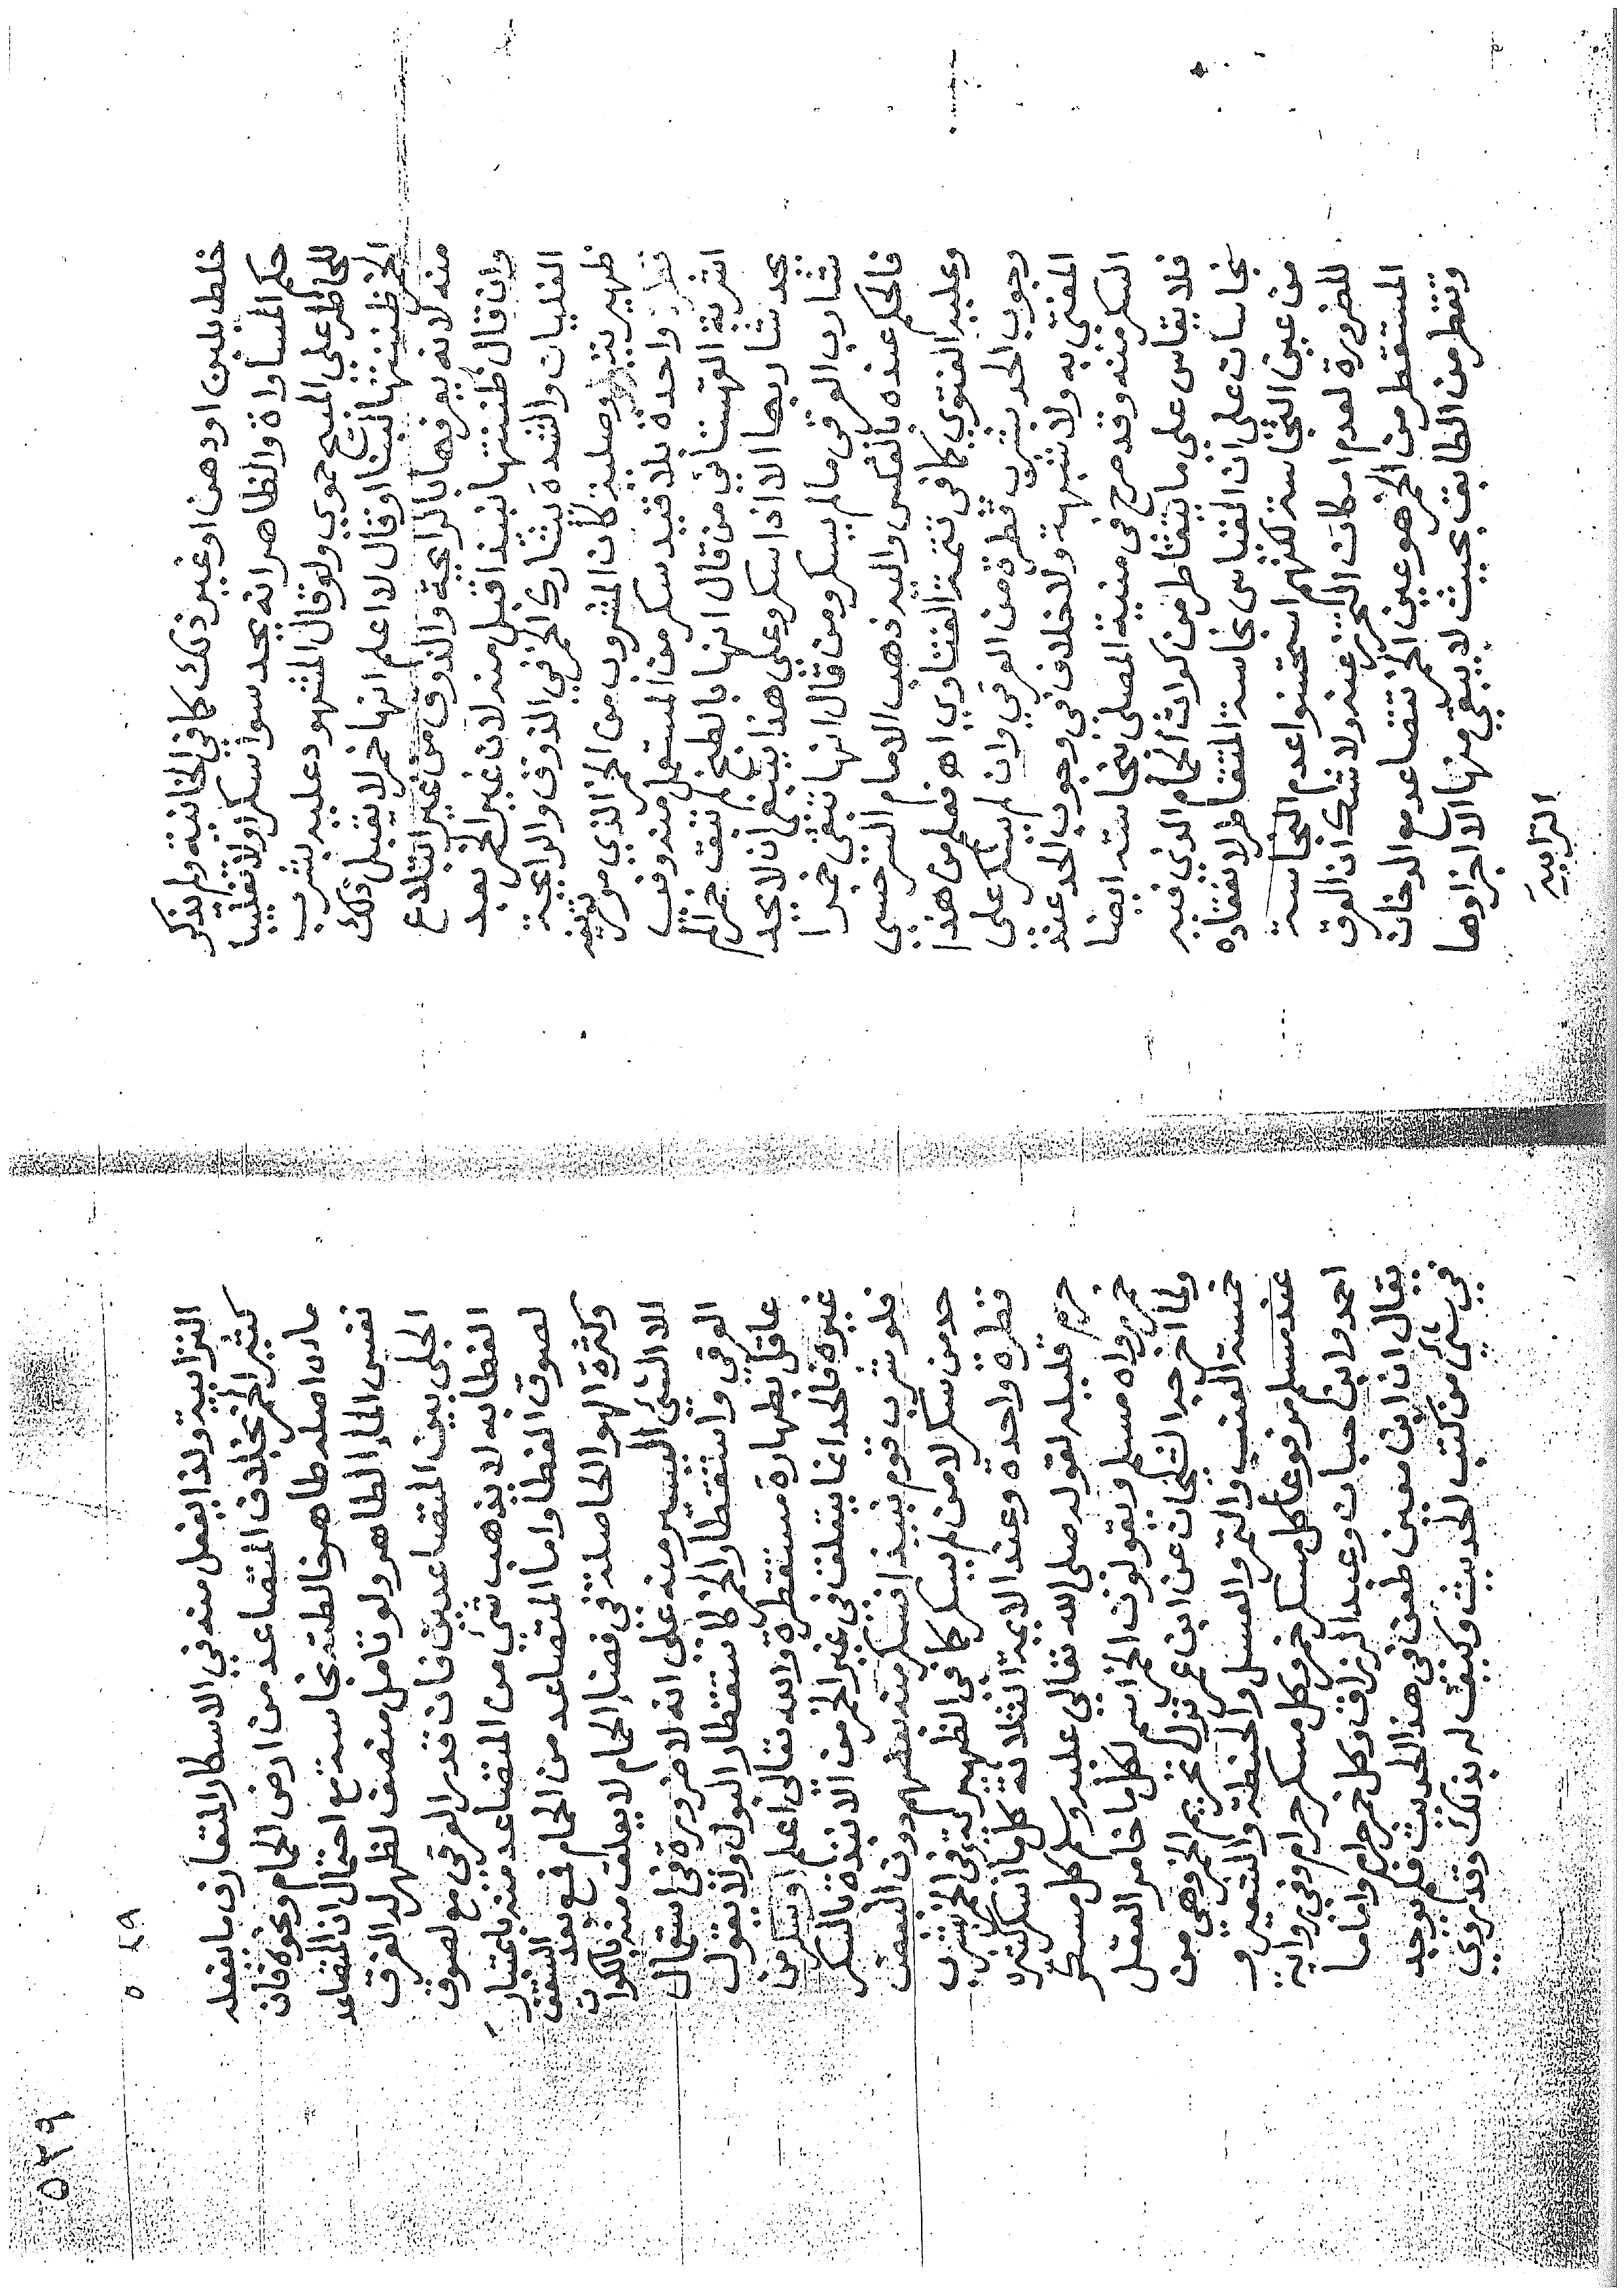 خلط بلبن او دهن او غير ذلك كما في الخانية ولم يذكر
حكم المساواة والظاهر انه يحد سوا سكر اولا تغليبا
للحاظر على المبيح حموي ولو قال المشهود عليه بشرب
الخمر ظننتها لبنا او قال لا اعلم انها خمر لا يقبل ذلك
منه لانه يعرفها بالرائحة والذوق من غير ابتلاع
وان قال ظننتها نبيذا قبل منه لان غير الخمر بعد
الغليان والشدة يشارك الخمر في الذوق والرائحة
ظهيرية وصلية كان المشروب من الخمر الذي مر تعريفه
قطرة واحدة بلا قيد سكر من المستعمل منه وفي
اشربة القهستاني من قال انها بالطبخ لم تبق خمرا لم
يحد شاربها الا اذا سكر وعلى هذا ينبغي ان لا يحد
شارب العرقي ما لم يسكر ومن قال انها تبقى خمرا
فالحكم عنده بالعكس واليه ذهب الامام السرخسي
وعليه الفتوى كما في تتمة الفتاوى اه فعلم من هذا
وجوب الحد بشرب قطرة من العرقي وان لم يسكر على
المفتى به ولا شبهة ولا خلاف في وجوب الحد عند
السكر منه وقد صرح في منية المصلي بنجاسته ايضا
فلا يقاس على ما يتقاطر من كوات الحمام الذي فيه
نجاسات على ان القياس نجاسة المتقاطر لانعقاده
من عين النجاسة لكنهم استحسنوا عدم النجاسة
للضرورة لعدم امكان التحرز عنه ولا شك ان العرق
المستقطر من الخمر هو عين الخمر تتصاعد مع الدخان
وتقطر من الطابق بحيث لا يبقى منها الا اجزاوها
الترابية
الترابية ولذا يفعل منه في الاسكار المتعارف ما يفعله
كثير الخمر بخلاف المتصاعد من ارض الحمام ونحوه فان
ماءه اصله طاهر خالطته نجاسة مع احتمال ان المتصاعد
نفس الماء الطاهر ولو تامل منصف لظهر له الفرق
الجلي بين المتصاعدين فان قدر العرقي مع لصوق
الغطا به لا يذهب شي من المتصاعد منه باعتبار
لصوق الغطا واما المتصاعد من الحمام فمع بعد السقف
وكثرة الهوا الحاصلة في فضاء الحمام لا يعلق منه بالكوات
الا الشي اليسير منه على انه لا ضرورة في استعمال
العرقي واستقطار الخمر كاستقطار البول ولا يقول
عاقل بطهارة مستقطره والله تعالى اعلم او سكر من
غيره فالحد انما يتعلق في غير الخمر من الانبذة بالسكر
فلو شرب قوم نبيذا فسكر منه بعضهم دون البعض
حد من سكر لا من لم يسكر كما في الظهيرية وفي الخمر بشرب
قطرة واحدة وعند الايمة الثلاثة كل ما اسكر كثيره
حرم قليله لقوله صلى الله تعالى عليه وسلم كل مسكر
خمر رواه مسلم ويقولون الخمر اسم لكل ما خامر العقل
ولما اخرجه الشيخان عن ابن عمر نزل تحريم الخمر وهي من
خمسة العنب والتمر والعسل والحنطة والشعير و
عند مسلم مرفوعا كل مسكر خمر وكل مسكر حرام وفي رواية
احمد وابن حبان وعبد الرزاق وكل خمر حرام واما ما
يقال ان ابن معين طعن في هذا الحديث فلم يوجد
في شي من كتب الحديث وكيف له بذلك وقد روي
٥٢٩
٥٢٩